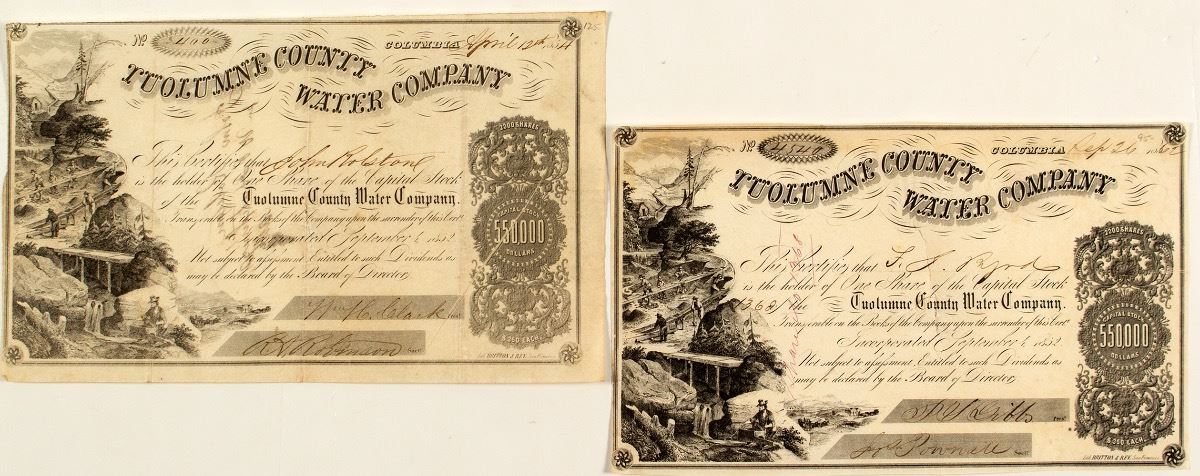 125
No. 400 COLUMBIA April 12th 1854
TUOLUMNE COUNTY
WATER COMPANY
This Certifies that John Rolston
is the holder of One Share of the Capital Stock
of the Tuolumne County Water Company.
Transferable on the Books of the Company upon the surrender of this Cert.
Incorporated September 4, 1852
Not subject to assessment Entitled to such Dividends as
may be declared by the Board of Directors
2200 SHARES
CAPITAL STOCK
550,000
DOLLARS
$ 250 EACH
Wm. H. Clark Prest.
Robinson Secty.
Lith. BRITTON & REY. San Francisco
No. 4540 COLUMBIA Sep 26 1862
TUOLUMNE COUNTY
WATER COMPANY
This Certifies that
is the holder of One Share of the Capital Stock
of the Tuolumne County Water Company.
Transferable on the Books of the Company upon the surrender of this Cert.
Incorporated September 4, 1852
Not subject to assessment Entitled to such Dividends as
may be declared by the Board of Directors
2200 SHARES
CAPITAL STOCK
550,000
DOLLARS
$ 250 EACH
Dibbs Prest.
Jos Pownall Secty.
Lith. BRITTON & REY. San Francisco